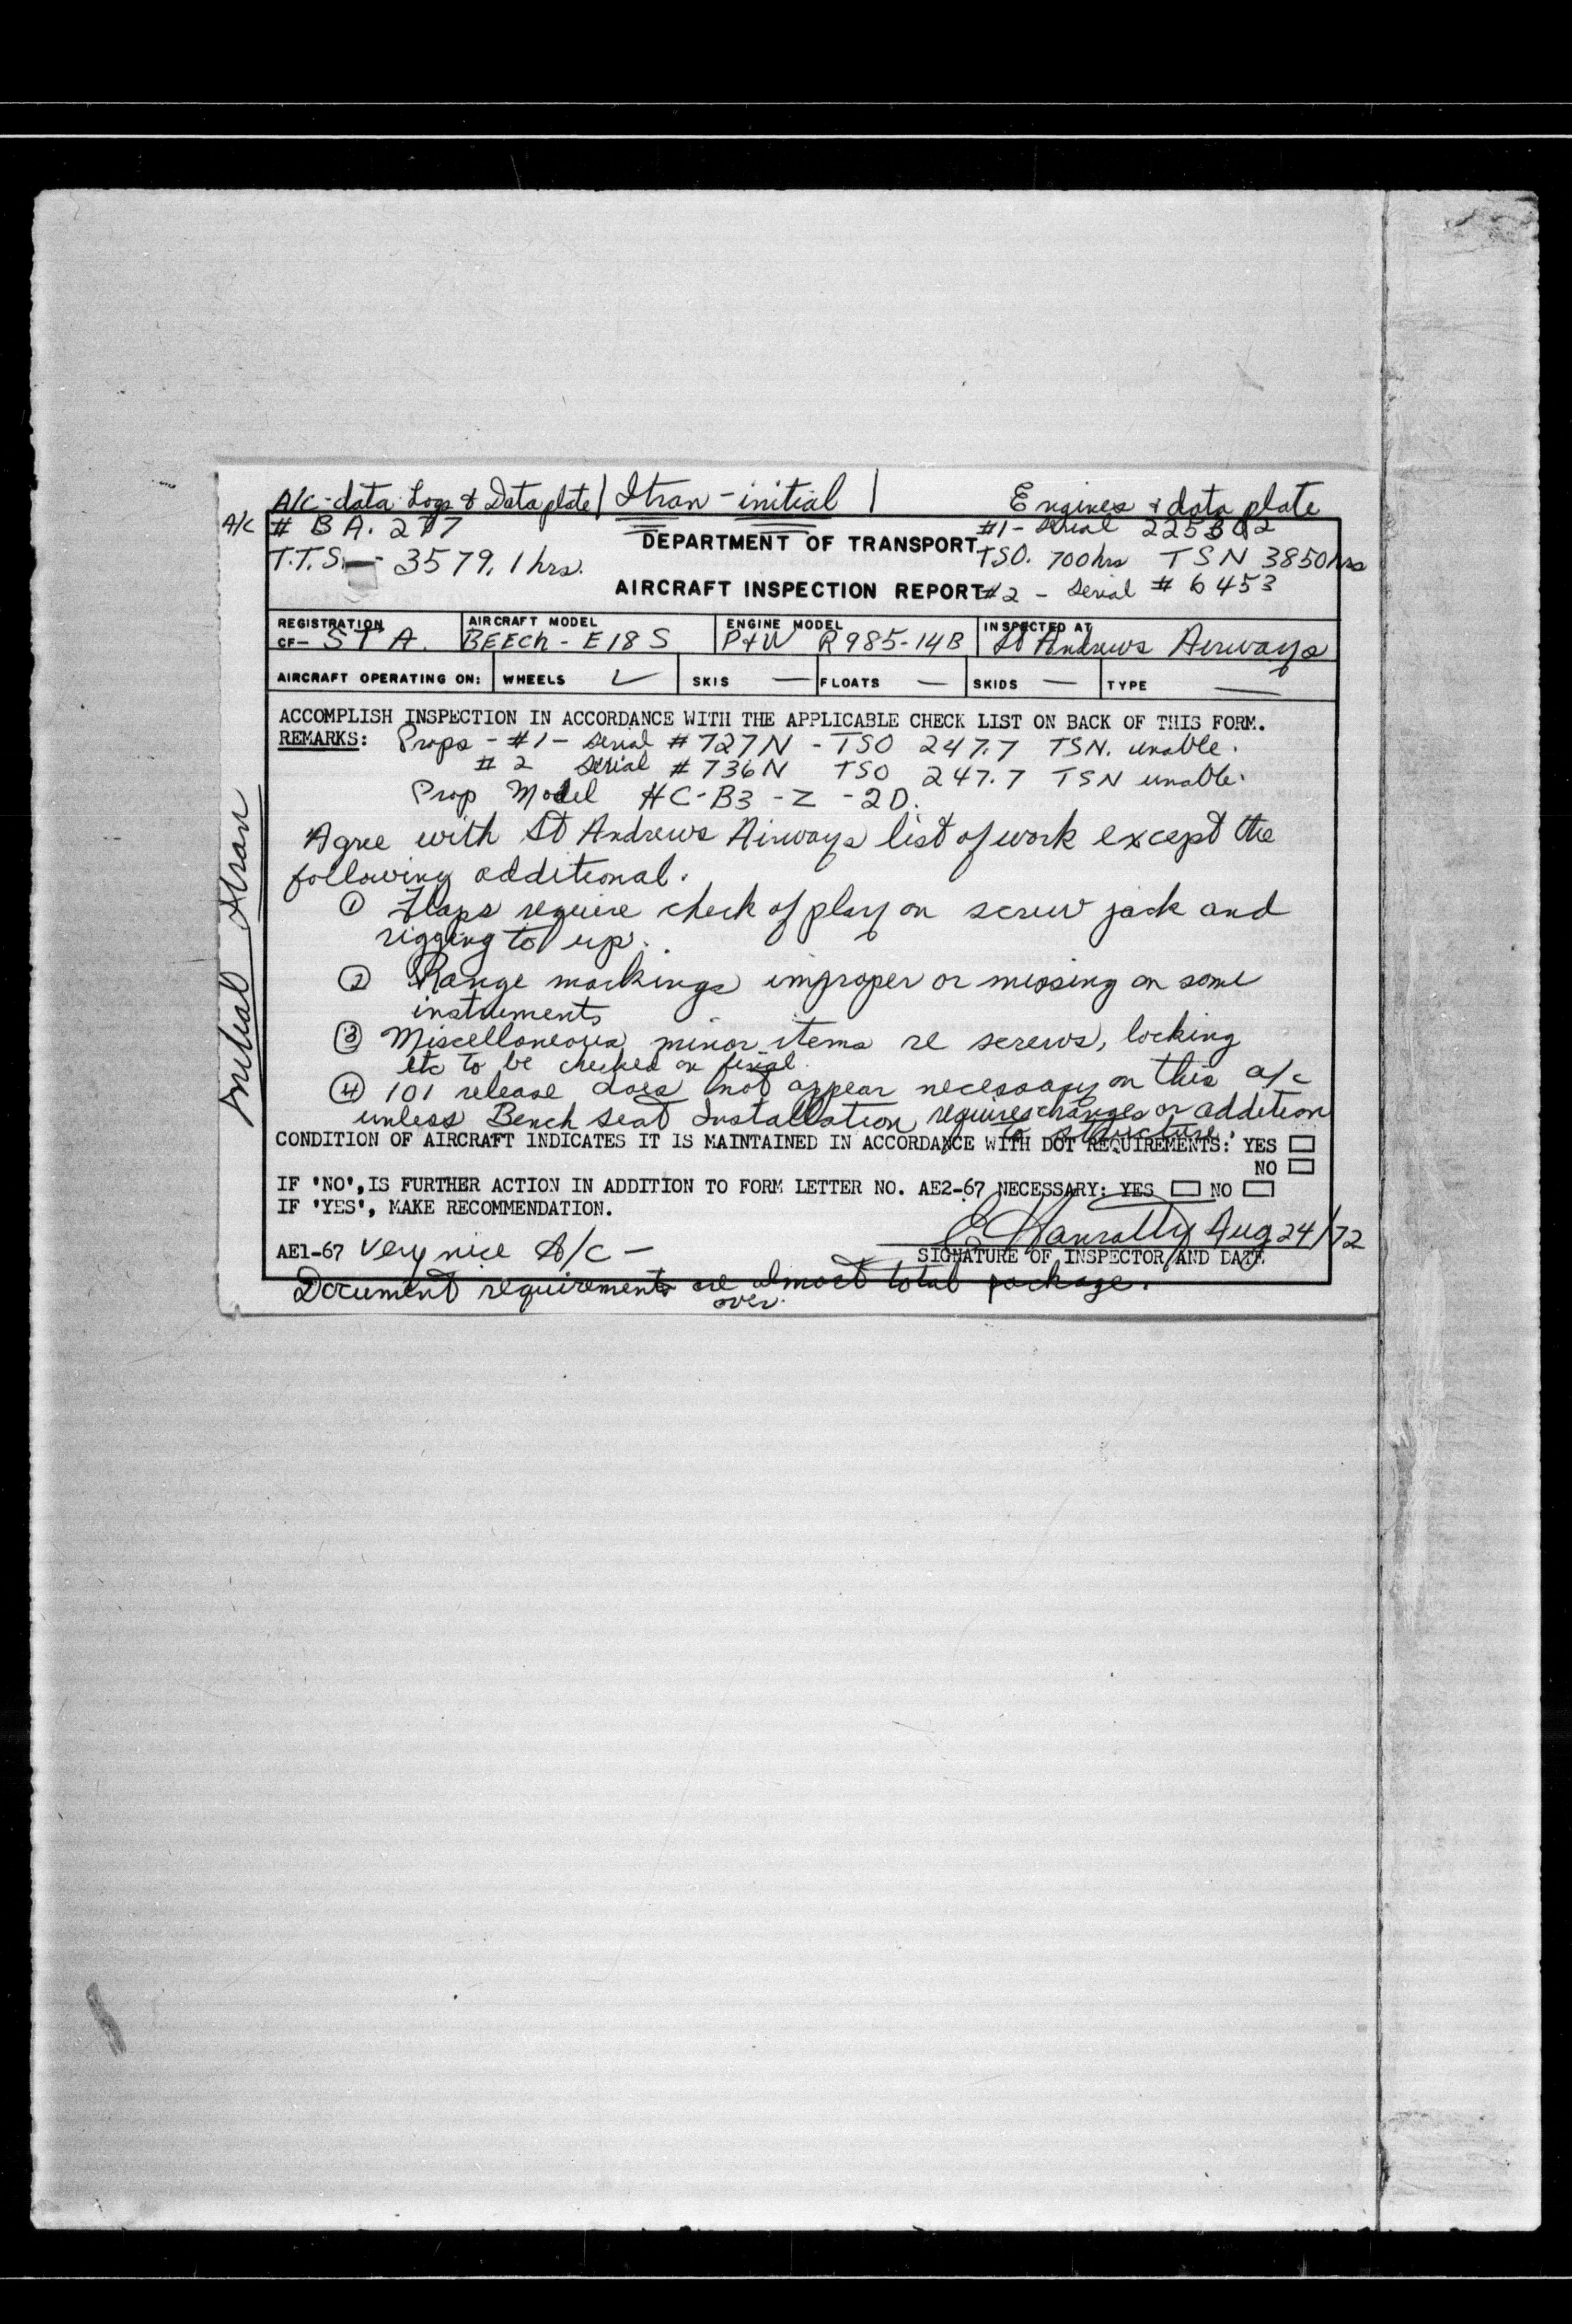 A/C - data Logs & Data plate | Itran - initial | Engines & data plate
A/C # BA. 277
#1 - Serial 225302
T.T.S. - 3579.1 hrs.
DEPARTMENT OF TRANSPORT
TSO. 700 hrs TSN 3850 hrs
AIRCRAFT INSPECTION REPORT
#2 - Serial # 6453
REGISTRATION AIRCRAFT MODEL ENGINE MODEL INSPECTED AT
CF- STA. BEECH - E18S P+W R985-14B St Andrews Airways
AIRCRAFT OPERATING ON: WHEELS ✓ SKIS — FLOATS — SKIDS — TYPE —
ACCOMPLISH INSPECTION IN ACCORDANCE WITH THE APPLICABLE CHECK LIST ON BACK OF THIS FORM.
REMARKS: Props - #1 - Serial # 727N - TSO 247.7 TSN. unable.
# 2 Serial # 736N TSO 247.7 TSN unable.
Prop Model HC-B3-Z-2D.
Agree with St Andrews Airways list of work except the
following additional.
① Flaps require check of play on screw jack and
rigging to up.
② Range markings improper or missing on some
instruments
③ Miscellaneous minor items re screws, locking
etc to be checked on final.
④ 101 release does not appear necessary on this a/c
unless Bench seat Installation requires changes or addition
to structure.
CONDITION OF AIRCRAFT INDICATES IT IS MAINTAINED IN ACCORDANCE WITH DOT REQUIREMENTS: YES
NO
IF 'NO', IS FURTHER ACTION IN ADDITION TO FORM LETTER NO. AE2-67 NECESSARY: YES NO
IF 'YES', MAKE RECOMMENDATION.
Aug 24/72
AE1-67 very nice A/C -
SIGNATURE OF INSPECTOR AND DATE
Document requirements are almost total package.
over.
Initial Itran